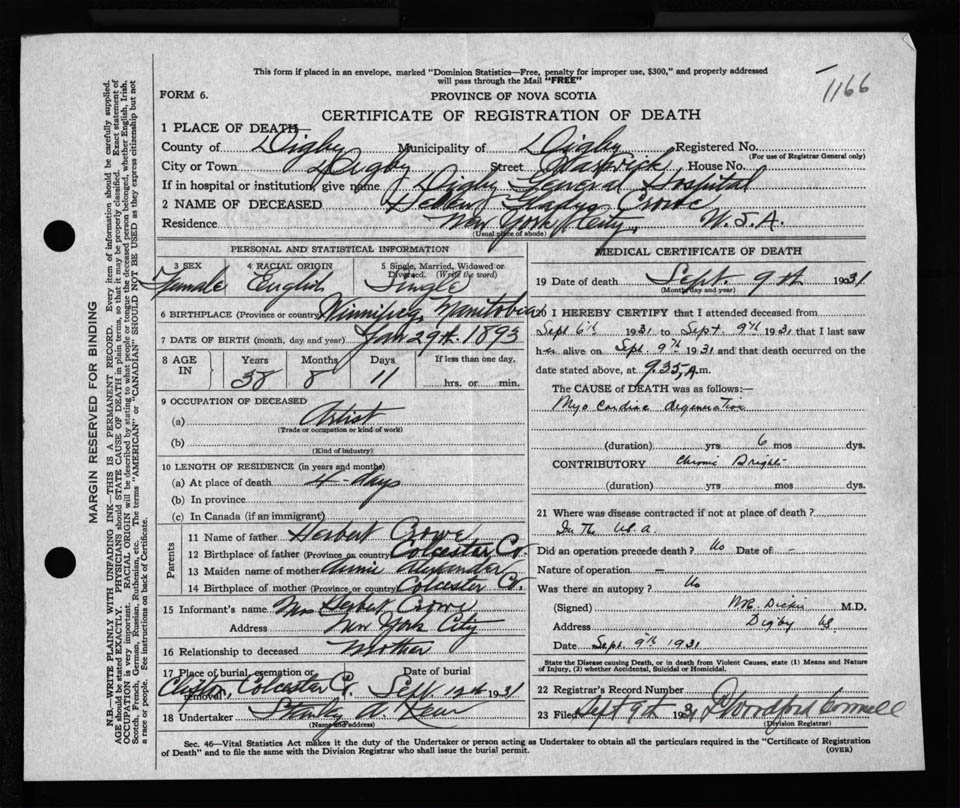 1166
This form if placed in an envelope, marked "Dominion Statistics—Free, penalty for improper use, $300," and properly addressed
will pass through the Mail "FREE"
FORM 6.
PROVINCE OF NOVA SCOTIA
CERTIFICATE OF REGISTRATION OF DEATH
1 PLACE OF DEATH
County of Digby Municipality of Digby Registered No.
(For use of Registrar General only)
City or Town Digby Street Warwick House No.
If in hospital or institution, give name Digby General Hospital
2 NAME OF DECEASED Hellen Gladys Crowe
Residence New York City, U.S.A.
(Usual place of abode)
PERSONAL AND STATISTICAL INFORMATION
3 SEX Female
4 RACIAL ORIGIN English
5 Single, Married, Widowed or
Divorced. (Write the word)
Single
6 BIRTHPLACE (Province or country) Winnipeg, Manitoba
7 DATE OF BIRTH (month, day and year) Jan 29th 1893
8 AGE IN Years 38 Months 8 Days 11 If less than one day, hrs. or min.
9 OCCUPATION OF DECEASED
(a) Artist
(Trade or occupation or kind of work)
(b)
(Kind of industry)
10 LENGTH OF RESIDENCE (in years and months)
(a) At place of death 4-days
(b) In province
(c) In Canada (if an immigrant)
Parents
11 Name of father Herbert Crowe
12 Birthplace of father (Province or country) Colcester Co.
13 Maiden name of mother Annie Alexander
14 Birthplace of mother (Province or country) Colcester Co.
15 Informant's name Mrs Herbert Crowe
Address New York City
16 Relationship to deceased Mother
17 Place of burial, cremation or removal Clifton, Colcester Co. Date of burial Sept 12th 1931
18 Undertaker
(Name and address)
MEDICAL CERTIFICATE OF DEATH
19 Date of death Sept. 9th 1931
(Month, day and year)
20 I HEREBY CERTIFY that I attended deceased from
Sept 6th 1931 to Sept 9th 1931 that I last saw
her alive on Sept 9th 1931 and that death occurred on the
date stated above, at 9.35 A.m.
The CAUSE of DEATH was as follows:—
Myo Cardiac degeneration
(duration) yrs 6 mos dys.
CONTRIBUTORY Chronic Brights
(duration) yrs mos dys.
21 Where was disease contracted if not at place of death?
In the U.S.A.
Did an operation precede death? No Date of -
Nature of operation -
Was there an autopsy? No
(Signed) Dickie M.D.
Address Digby NS
Date Sept. 9th 1931
State the Disease causing Death, or in death from Violent Causes, state (1) Means and Nature
of Injury, (2) whether Accidental, Suicidal or Homicidal.
22 Registrar's Record Number
23 Filed Sept 9th 1931
(Division Registrar)
Sec. 46—Vital Statistics Act makes it the duty of the Undertaker or person acting as Undertaker to obtain all the particulars required in the "Certificate of Registration
of Death" and to file the same with the Division Registrar who shall issue the burial permit.
(OVER)
MARGIN RESERVED FOR BINDING
N.B.—WRITE PLAINLY WITH UNFADING INK—THIS IS A PERMANENT RECORD. Every item of information should be carefully supplied.
AGE should be stated EXACTLY. PHYSICIANS should STATE CAUSE OF DEATH in plain terms, so that it may be properly classified. Exact statement of
OCCUPATION is very important. RACIAL ORIGIN will be described by stating to what people or tongue the deceased person belonged, whether English, Irish,
Scotch, French, German, Russian, Ruthenian, etc. The terms "AMERICAN" or "CANADIAN" SHOULD NOT BE USED as they express citizenship but not
a race or people. See instructions on back of Certificate.